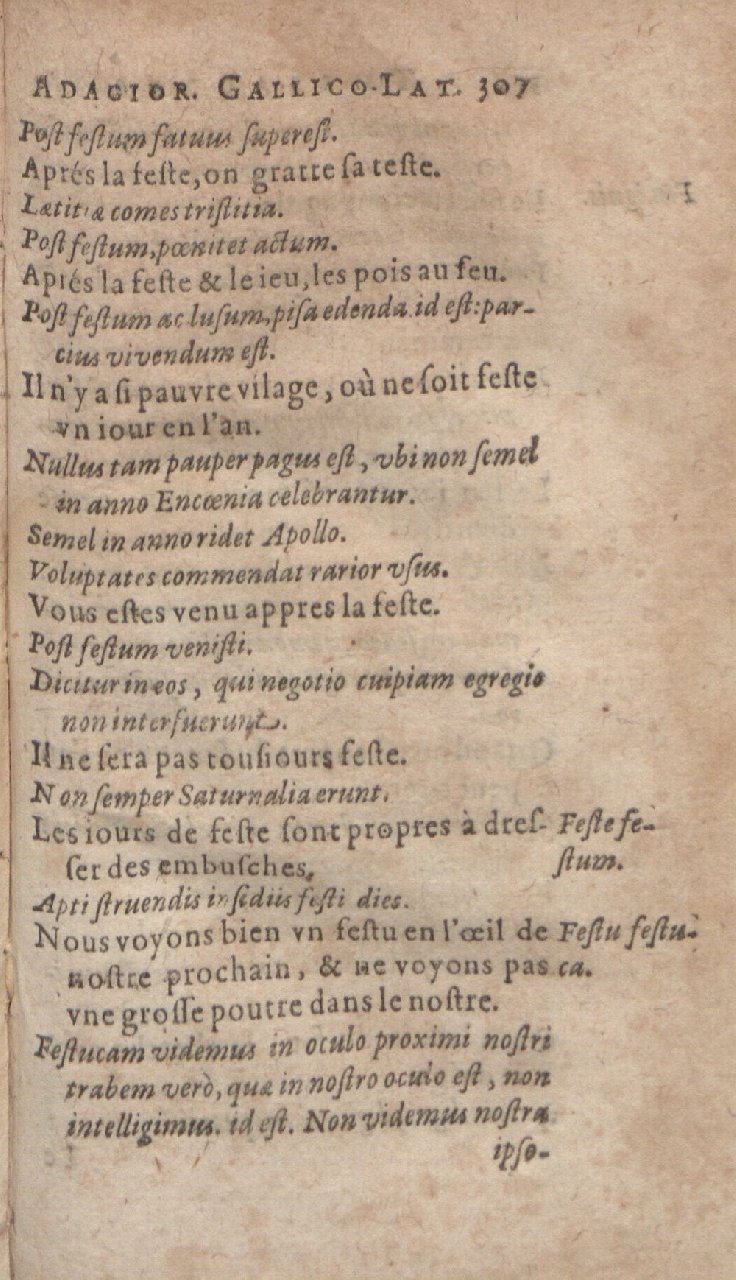 ADAGIOR. GALLICO-LAT. 307
Post festum fatuus superest.
Aprés la feste, on gratte sa teste.
Lætitiæ comes tristitia.
Post festum, pœnitet actum.
Aprés la feste & le ieu, les pois au feu.
Post festum ac lusum, pisa edenda id est: par-
cius vivendum est.
Il n'y a si pauvre vilage, où ne soit feste
vn iour en l'an.
Nullus tam pauper pagus est, vbi non semel
in anno Encœnia celebrantur.
Semel in anno ridet Apollo.
Voluptates commendat rarior vsus.
Vous estes venu appres la feste.
Post festum venisti.
Dicitur in eos, qui negotio cuipiam egregio
non interfuerunt.
Il ne sera pas tousiours feste.
Non semper Saturnalia erunt.
Les iours de feste sont propres à dres- Feste fe-
ser des embusches. stum.
Apti struendis insidiis festi dies.
Nous voyons bien vn festu en l'œil de Festu festu-
nostre prochain, & ne voyons pas ca.
vne grosse poutre dans le nostre.
Festucam videmus in oculo proximi nostri
trabem verò, quæ in nostro oculo est, non
intelligimus. id est. Non videmus nostra
ipso-